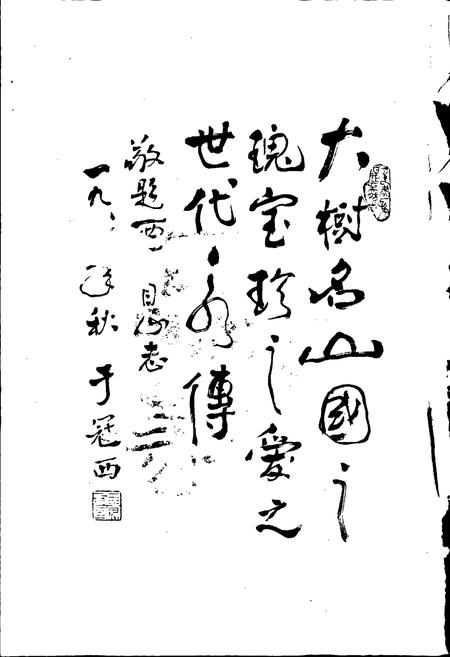 大樹名山國之
瑰宝珍之愛之
世代永傳
敬題西目山志
一九 年秋 于冠西